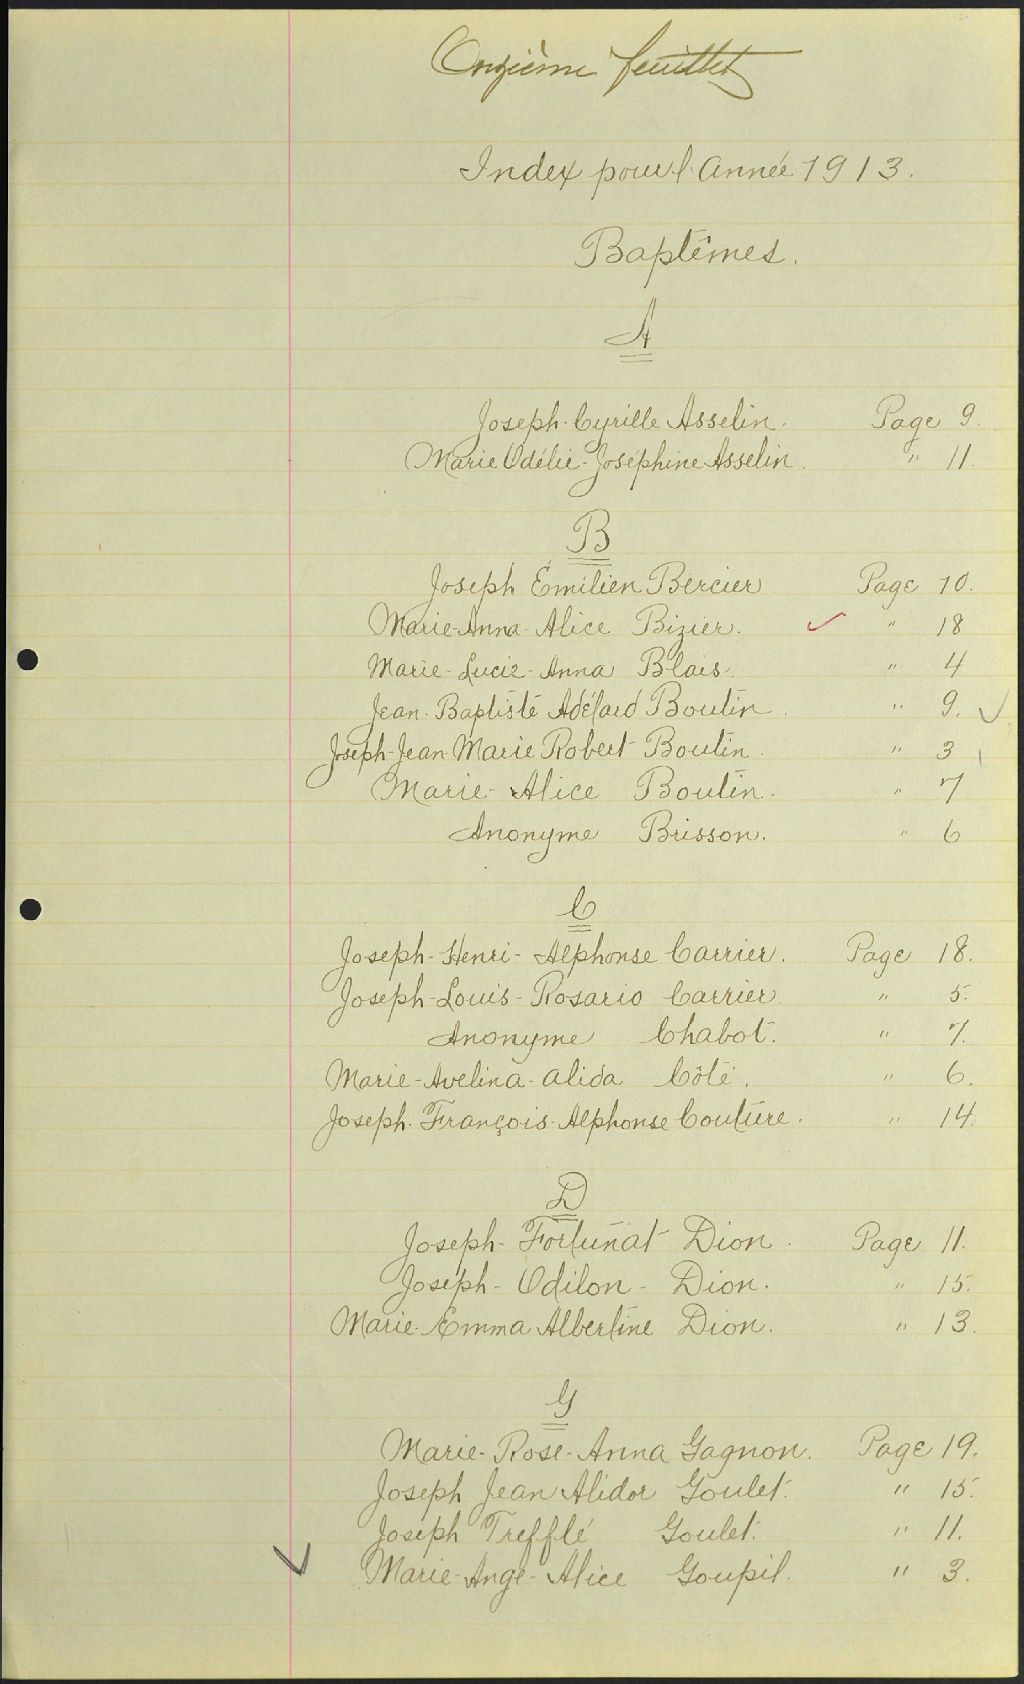 Onzième feuillet
Index pour l'Année 1913.
Baptêmes.
A
Joseph-Cyrille Asselin. Page 9.
Marie Odélie-Joséphine Asselin. " 11.
B
Joseph Émilien Bercier Page 10.
Marie-Anna-Alice Bizier. " 18
Marie-Lucie-Anna Blais. " 4
Jean-Baptiste Adélard Boutin. " 9.
Joseph-Jean Marie Robert Boutin. " 3
Marie-Alice Boutin. " 7
Anonyme Brisson. " 6
C
Joseph-Henri-Alphonse Carrier. Page 18.
Joseph-Louis-Rosario Carrier. " 5.
Anonyme Chabot. " 7.
Marie-Avelina-Alida Côté. " 6.
Joseph-François-Alphonse Couture. " 14.
D
Joseph-Fortunat Dion. Page 11.
Joseph-Odilon-Dion. " 15.
Marie-Emma Albertine Dion. " 13.
G
Marie-Rose-Anna Gagnon. Page 19.
Joseph Jean Alidor Goulet. " 15.
Joseph Trefflé Goulet. " 11.
Marie-Ange-Alice Goupil. " 3.